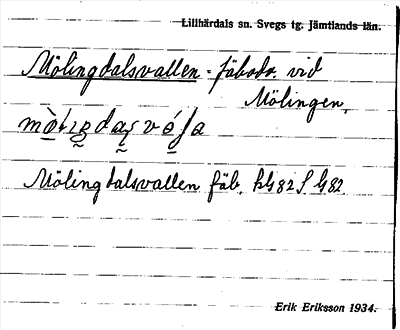 Lillhärdals sn. Svegs tg. Jämtlands län.
Mölingdalsvallen - fäbodv. vid
Mölingen.
Mölingdalsvallen fäb.
Erik Eriksson 1934.